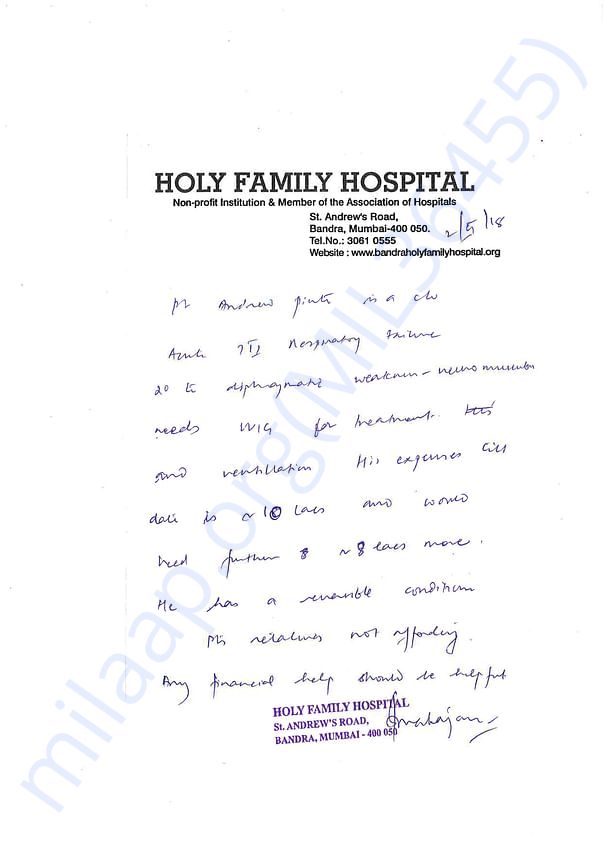 HOLY FAMILY HOSPITAL
Non-profit Institution & Member of the Association of Hospitals
St. Andrew's Road,
Bandra, Mumbai-400 050.
2/5/18
Tel.No.: 3061 0555
Website : www.bandraholyfamilyhospital.org
pt Andrew pinto is a c/o
Acute Respiratory failure
2º to diphragmatic weakness - neuromuscular
needs IVIG for treatment.
and ventillation His expenses till
date is ~ 10 Lacs and would
need further ~ 8 lacs more.
He has a reversible condition
Pts relatives not affording
Any financial help should be helpful
HOLY FAMILY HOSPITAL
St. ANDREW'S ROAD,
BANDRA, MUMBAI - 400 050
milaap.org(MIL36455)